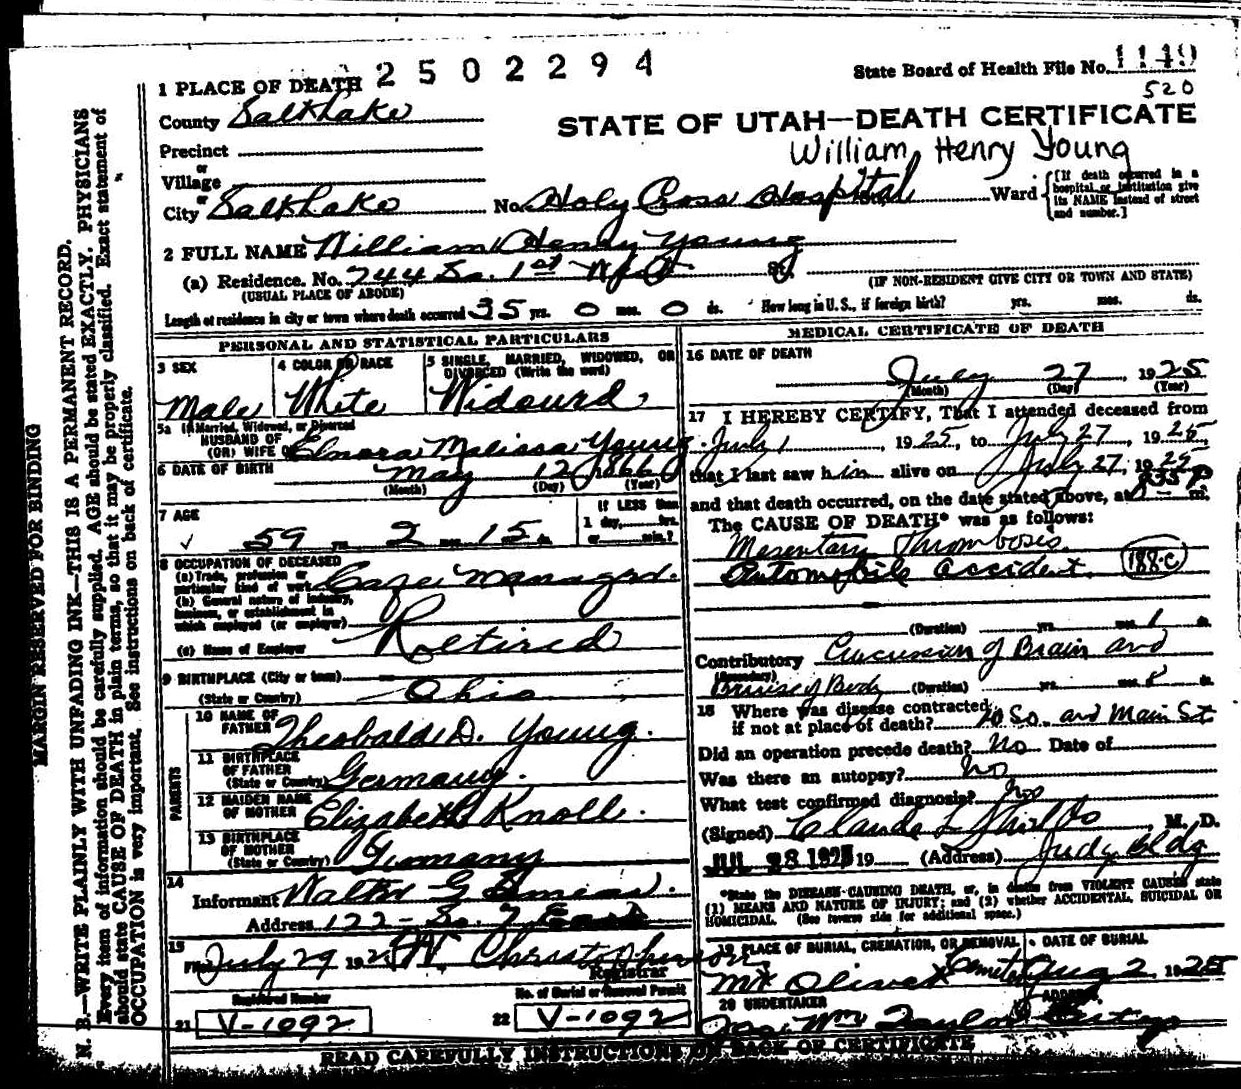 2502294
State Board of Health File No. 1149
520
1 PLACE OF DEATH
County Salt Lake
STATE OF UTAH—DEATH CERTIFICATE
William Henry Young
Precinct
or
Village
or
City Salt Lake No. Holy Cross Hospital Ward
[If death occurred in a hospital or institution give its NAME instead of street and number.]
2 FULL NAME William Henry Young
(a) Residence. No. 744 So. 1st West St.
(USUAL PLACE OF ABODE)
(IF NON-RESIDENT GIVE CITY OR TOWN AND STATE)
Length of residence in city or town where death occurred 35 yrs. 0 mos. 0 ds. How long in U. S., if foreign birth? yrs. mos. ds.
PERSONAL AND STATISTICAL PARTICULARS
3 SEX
Male
4 COLOR OR RACE
White
5 SINGLE, MARRIED, WIDOWED, OR DIVORCED (Write the word)
Widowed.
5a If Married, Widowed, or Divorced
HUSBAND OF
(OR) WIFE OF Elnora Malissa Young.
6 DATE OF BIRTH May 12 1866
(Month) (Day) (Year)
7 AGE
59 yrs. 2 mos. 15 ds.
If LESS than
1 day, hrs.
or min.?
8 OCCUPATION OF DECEASED
(a) Trade, profession or
particular kind of work Cafe Manager.
(b) General nature of industry,
business, or establishment in
which employed (or employer)
Retired
(c) Name of Employer
9 BIRTHPLACE (City or town)
(State or Country) Ohio
PARENTS
10 NAME OF
FATHER Theobald D. Young.
11 BIRTHPLACE
OF FATHER
(State or Country) Germany.
12 MAIDEN NAME
OF MOTHER Elizabeth Knoll.
13 BIRTHPLACE
OF MOTHER
(State or Country) Germany
14
Informant Walter G.
Address 122 - So. 7 East
15
Filed July 29 192 W. Christopherson
Registrar
Registered Number
21 V-1092
No. of Burial or Removal Permit
22 V-1092
MEDICAL CERTIFICATE OF DEATH
16 DATE OF DEATH
July 27 1925
(Month) (Day) (Year)
17 I HEREBY CERTIFY, That I attended deceased from
July 1, 1925, to July 27, 1925,
that I last saw him alive on July 27, 1925
and that death occurred, on the date stated above, at 835 P m.
The CAUSE OF DEATH* was as follows:
Mesentary Thrombosis
Automobile accident. 188-c
(Duration) yrs. mos. 1 ds.
Contributory Concussion of Brain and
(Secondary)
Bruise of Body (Duration) yrs. mos. 8
18 Where was disease contracted
if not at place of death? So. and Main St
Did an operation precede death? No Date of
Was there an autopsy? No
What test confirmed diagnosis?
(Signed) Claude L Shields M. D.
JUL 28 1925 19 (Address) Judge Bldg
*State the DISEASE-CAUSING DEATH, or, in deaths from VIOLENT CAUSES state
(1) MEANS AND NATURE OF INJURY; and (2) whether ACCIDENTAL, SUICIDAL OR
HOMICIDAL. (See reverse side for additional space.)
19 PLACE OF BURIAL, CREMATION, OR REMOVAL
Mt Olivet Cemetery
DATE OF BURIAL
Aug 2 1925
20 UNDERTAKER
Jos. Wm Taylor
ADDRESS
READ CAREFULLY INSTRUCTIONS ON BACK OF CERTIFICATE
MARGIN RESERVED FOR BINDING
N. B.—WRITE PLAINLY WITH UNFADING INK—THIS IS A PERMANENT RECORD.
Every item of information should be carefully supplied. AGE should be stated EXACTLY. PHYSICIANS
should state CAUSE OF DEATH in plain terms, so that it may be properly classified. Exact statement of
OCCUPATION is very important. See instructions on back of certificate.